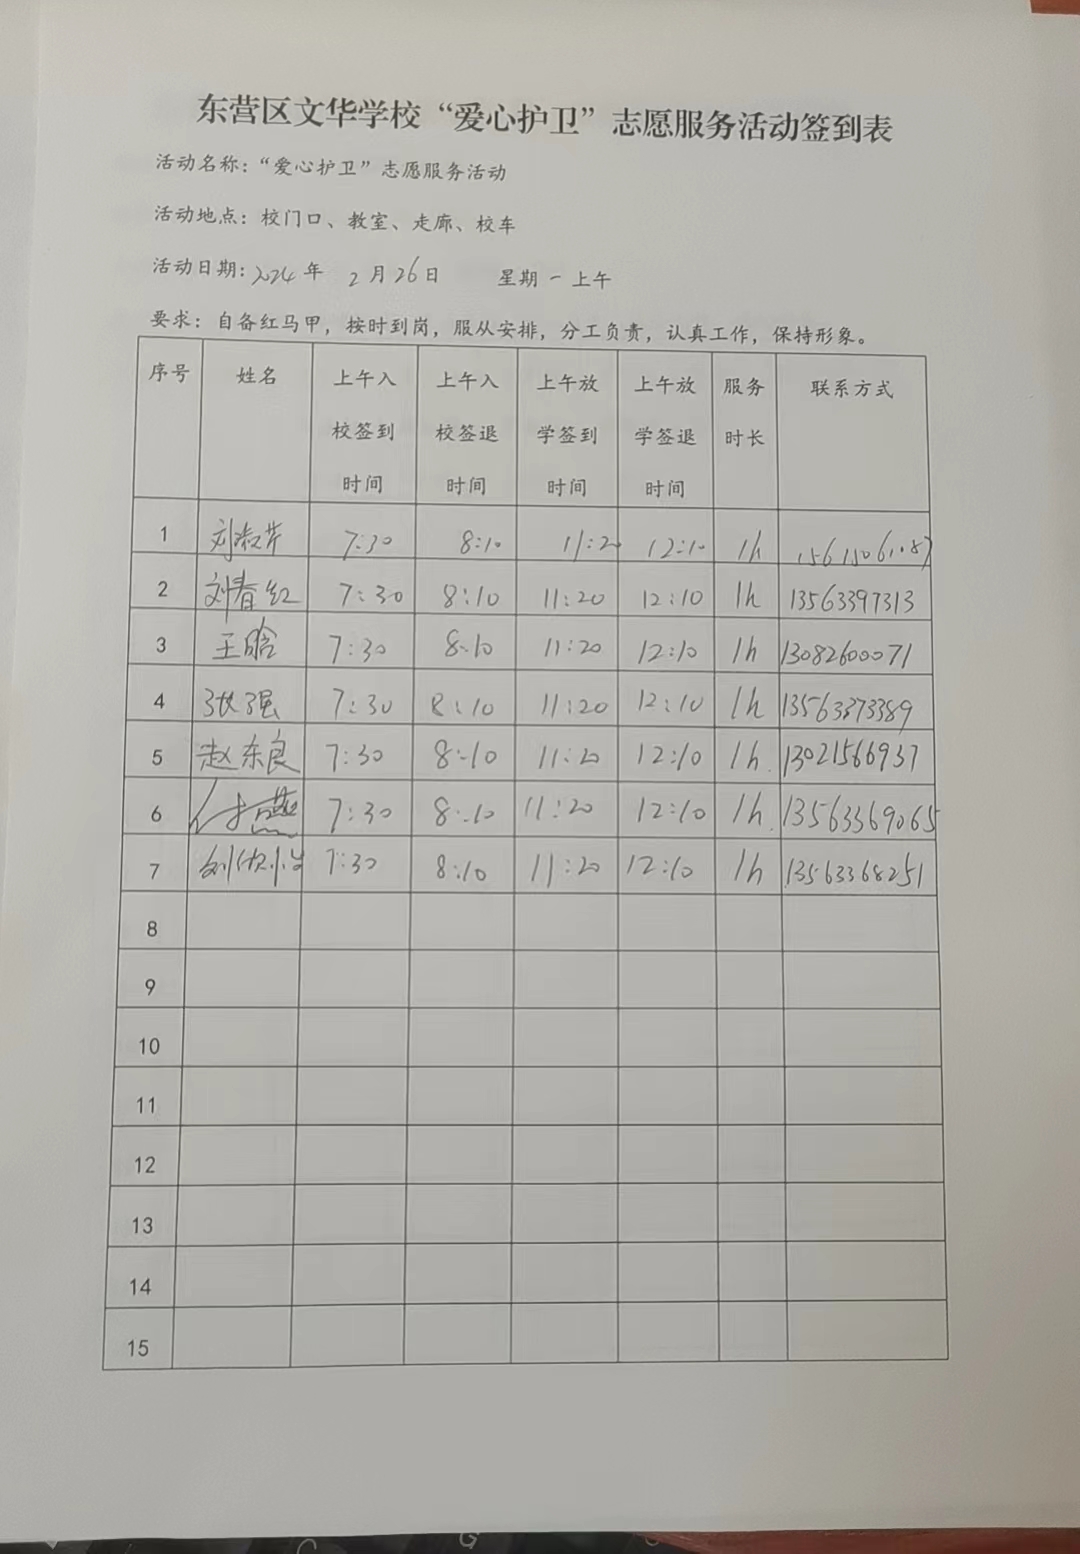 东营区文华学校“爱心护卫”志愿服务活动签到表
活动名称：“爱心护卫”志愿服务活动
活动地点：校门口、教室、走廊、校车
活动日期：2024年 2月26日 星期一上午
要求：自备红马甲，按时到岗，服从安排，分工负责，认真工作，保持形象。
序号 姓名 上午入校签到时间 上午入校签退时间 上午放学签到时间 上午放学签退时间 服务时长 联系方式
1 刘淑芹 7:30 8:10 11:20 12:10 1h 15615061087
2 刘春红 7:30 8:10 11:20 12:10 1h 13563397313
3 王晗 7:30 8:10 11:20 12:10 1h 13082600071
4 张强 7:30 8:10 11:20 12:10 1h 13563373389
5 赵东良 7:30 8:10 11:20 12:10 1h 13021566937
6 7:30 8:10 11:20 12:10 1h 13563369065
7 7:30 8:10 11:20 12:10 1h 13563368251
8
9
10
11
12
13
14
15